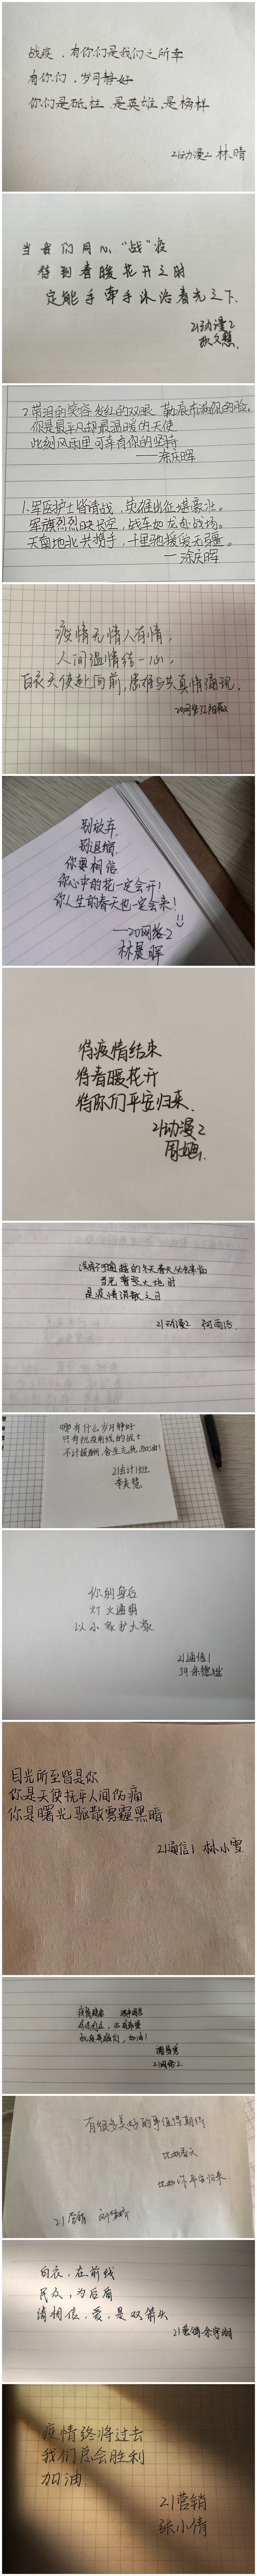 战疫，有你们是我们之所幸
有你们，岁月静好
你们是砥柱，是英雄，是榜样
21动漫2 林晴
当我们同心“战”疫
待到春暖花开之时
定能手牵手沐浴春光之下.
21动漫2
2.带泪的笑容 发红的双眼 勒痕布满你的脸。
你是最平凡却最温暖的天使
此刻风雨里 可幸有你的坚持
——涂庆晖
1.军医护士皆请战，英雄出征堪豪壮。
军旗烈烈映长空，战车如龙赴战场。
天南地北共携手，千里驰援爱无疆。
—涂庆晖
疫情无情人有情，
人间温情结一心，
白衣天使赴向前，患难与共真情涌现.
别放弃.
别退缩.
你要相信
你心中的花一定会开!
你人生的春天也一定会来!
——20网络2
林晨晖
待疫情结束
待春暖花开
待你们平安归来.
21动漫2
没有不可逾越的冬天春天必将来临
当光 大地时
是疫情消散之日
21动漫2
哪有什么岁月静好
只有抗疫前线的战士
不计报酬,舍生忘死.加油!
21会计1班
你的身后
灯火通明
以小家护大家
21通信1
目光所至皆是你
你是天使抚平人间伤痛
你是曙光驱散雾霾黑暗
21通信1 林小雪
21网络2
有很多美好的事值得期待
比如春天
比如你平安归来
21营销
白衣，在前线
民众，为后盾
请相信，爱，是双箭头
21营销
疫情终将过去
我们总会胜利
加油
21营销
张小倩